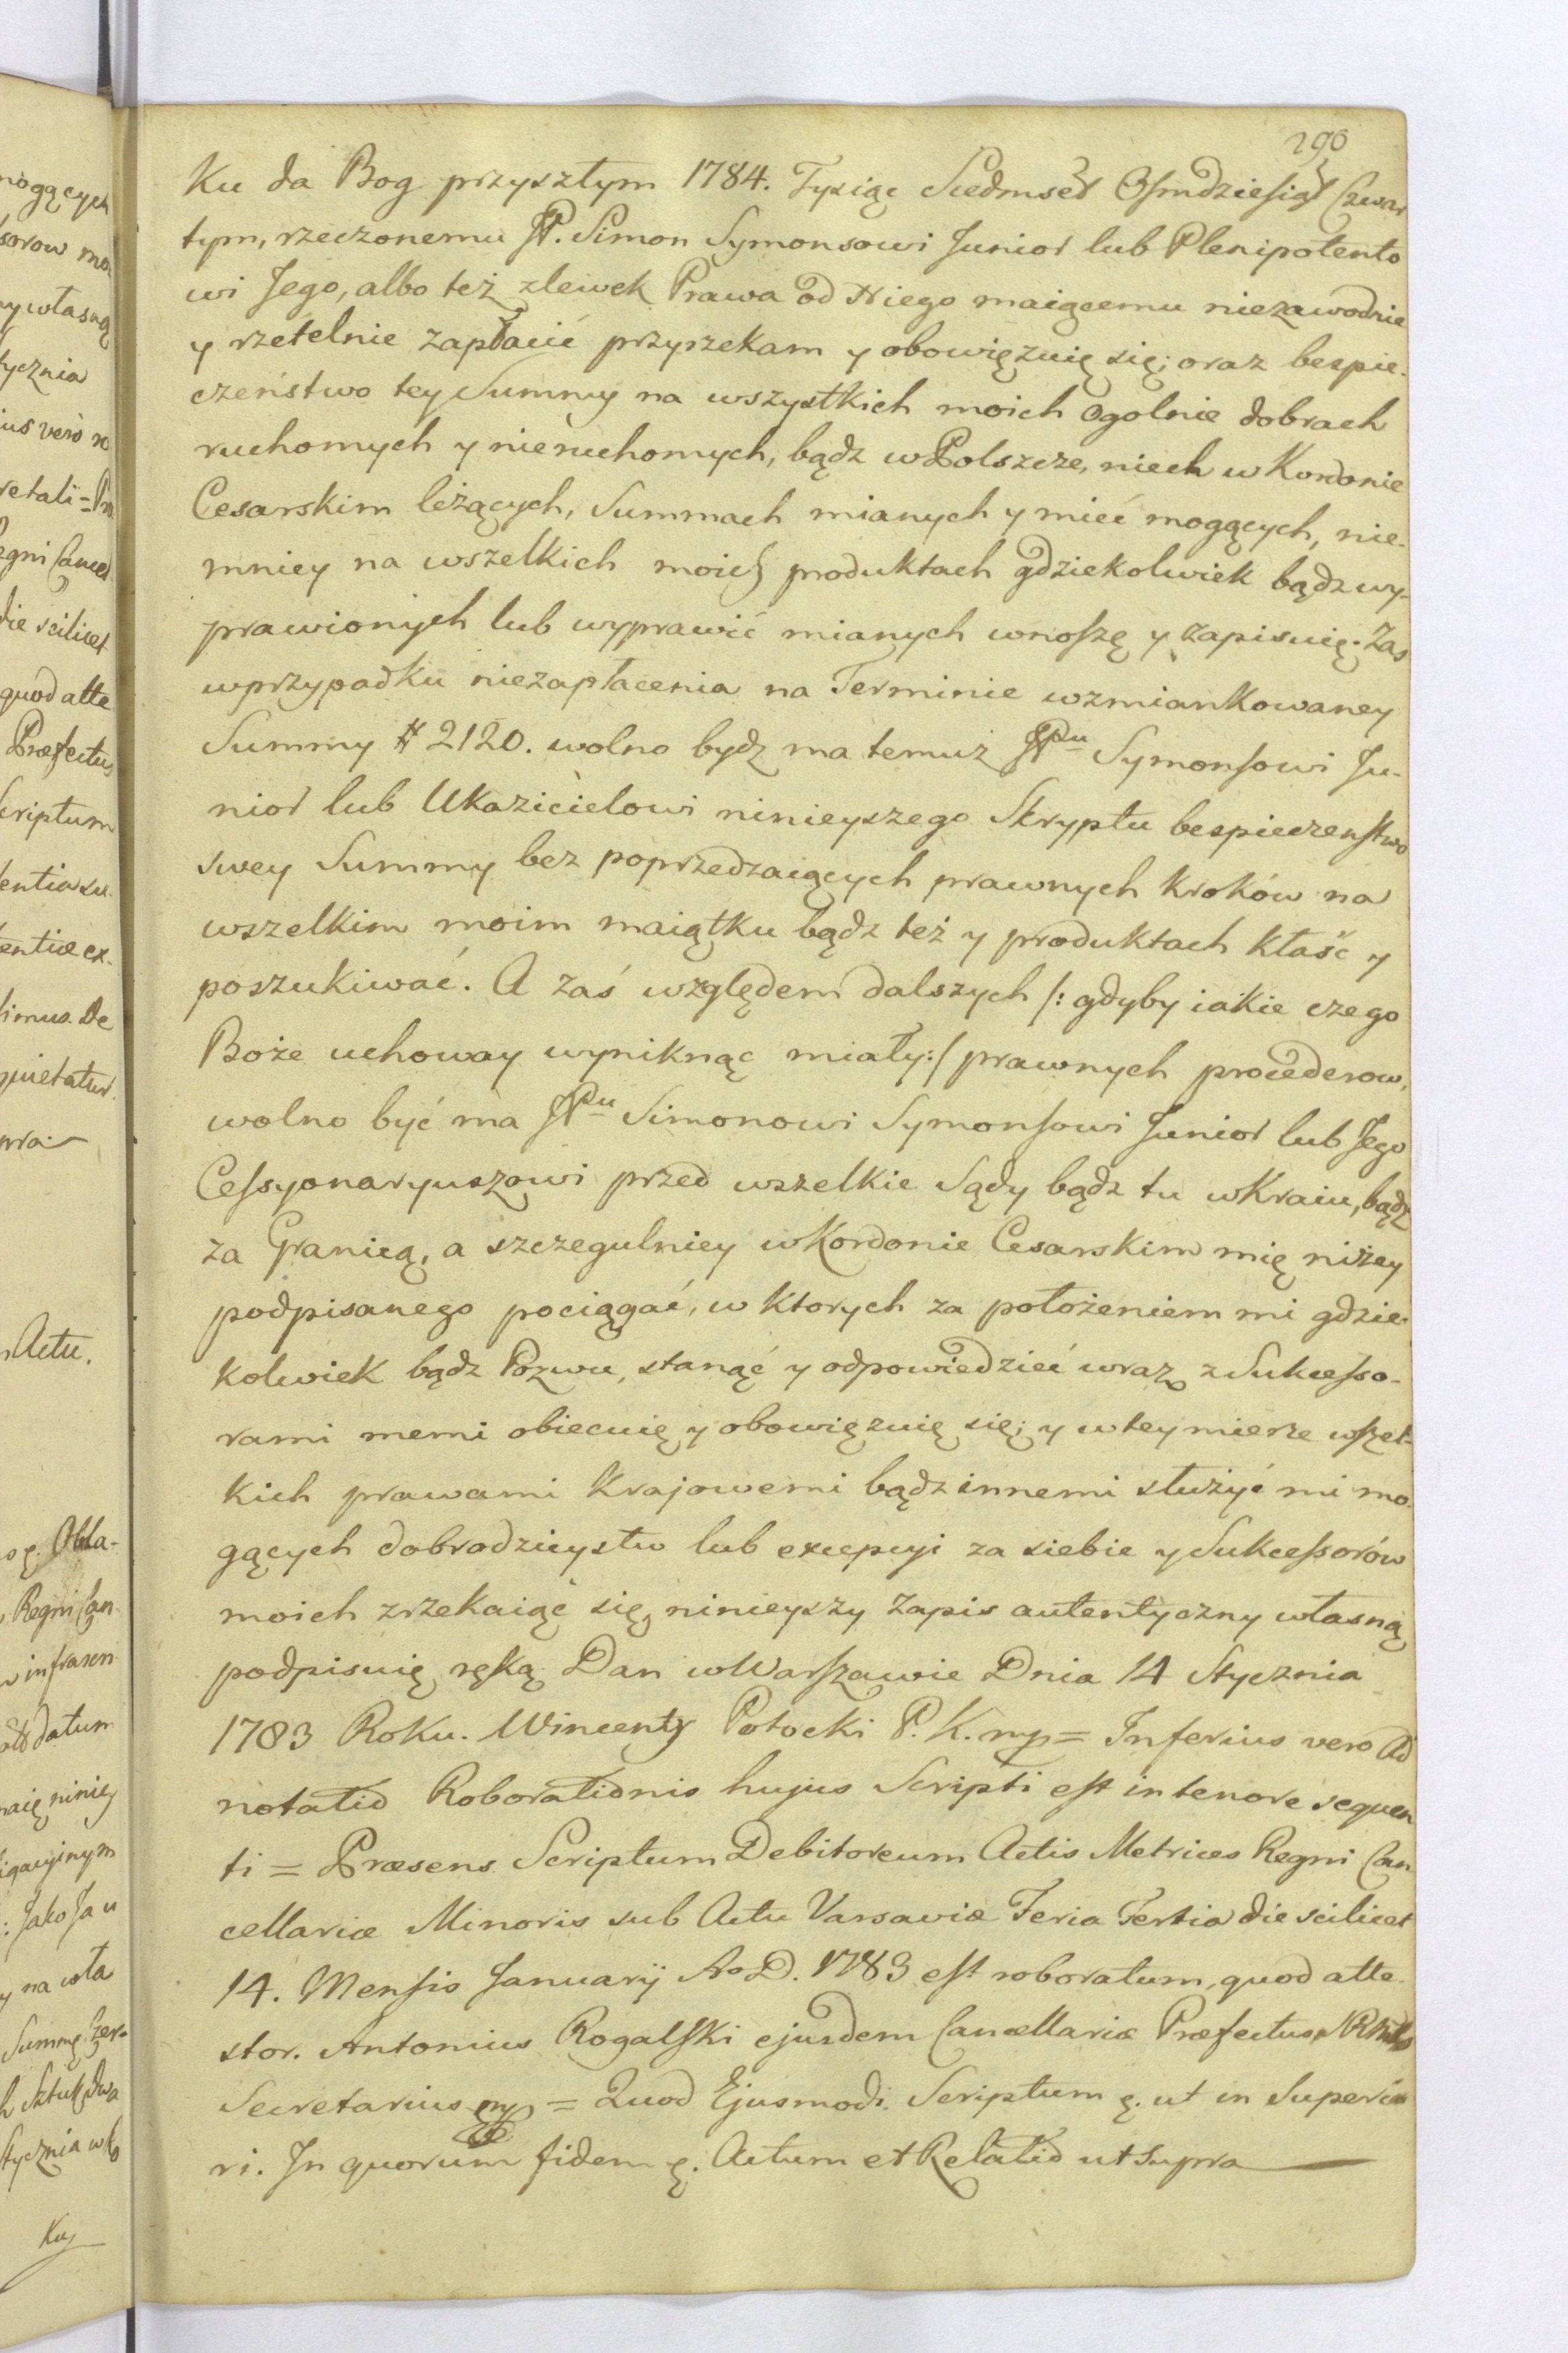 290
Ku da Bog przyszłym 1784. Tysiąc Siedmset Osmdziesiąt Czwar
tym, rzeczonemu JP. Simon Symonsowi Junior lub Plenipotento
wi Jego, albo też zlewek Prawa od Niego maiącemu niezawodnie
y rzetelnie zapłacić przyrzekam y obowięzuię się; oraz bespie-
czeństwo tey Summy na wszystkich moich ogolnie dobrach
ruchomych y nieruchomych, bądz w Polszcze, niech w Kordonie
Cesarskim leżących, Summach mianych y mieć mogących, nie-
mniey na wszelkich moich produktach gdziekolwiek bądz wy-
prawionych lub wyprawić mianych wnoszę y zapisuię. Zas
w przypadku niezapłacenia na Terminie wzmiankowaney
Summy # 2120. wolno bydz ma temuż JPu Symonsowi Ju-
nior lub Ukazicielowi ninieyszego Skryptu bespieczenstwo
swey Summy bez poprzedzaiących prawnych kroków na
wszelkim moim maiątku bądz też y produktach kłaść y
poszukiwać. A zaś względem dalszych /: gdyby iakie czego
Boże uchoway wyniknąc miały:/ prawnych procederow,
wolno być ma JPu Simonowi Symonsowi Junior lub Jego
Cessyonaryuszowi przed wszelkie Sądy bądz tu w Kraiu, bądz
za Granicą, a szczegulniey w Kordonie Cesarskim mię niżey
podpisanego pociągać, w ktorych za położeniem mi gdzie-
kolwiek bądz Pozwu, stanąć y odpowiedzieć wraz z Sukcesso-
rami memi obiecuię y obowięzuię się; y w tey mierze wszel-
kich prawami Krajowemi bądz innemi służyć mi mo-
gących dobrodzieystw lub excepcyi za siebie y Sukcessorów
moich zrzekaiąc się, ninieyszy Zapis autentyczny własną
podpisuię ręką Dan w Warszawie Dnia 14 Stycznia
1783 Roku. Wincenty Potocki P. K. mp = Inferius vero Ad
notatio Roborationis hujus Scripti est in tenore sequen
ti = Præsens Scriptum Debitoreum Actis Metrices Regni Can
cellariæ Minoris sub Actu Varsaviæ Feria Tertia die scilicet
14. Mensis Januarij Ao D. 1783 est roboratum, quod atte-
stor. Antonius Rogalski ejusdem Cancellariæ Præfectus
Secretarius mp = Quod Ejusmodi Scriptum ę. ut in Superio
ri. In quorum fidem ę. Actum et Relatio ut supra